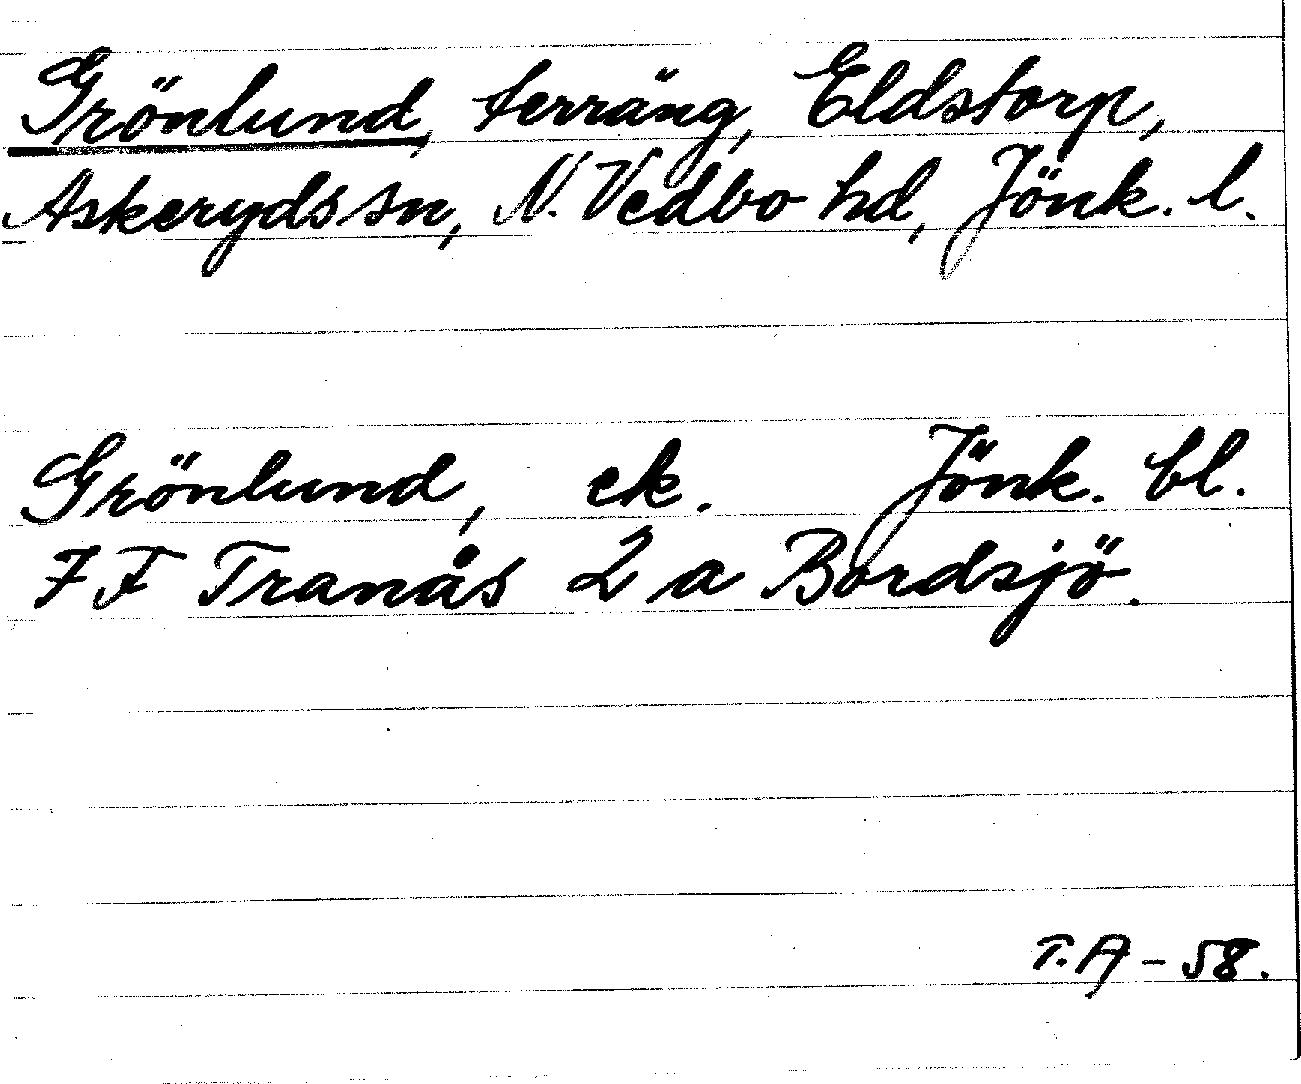 Grönlund, terräng, Eldstorp,
Askeryds sn, N. Vedbo hd, Jönk. l.
Grönlund, ek. Jönk. bl.
7 F Tranås 2 a Bordsjö.
T.A - 58.